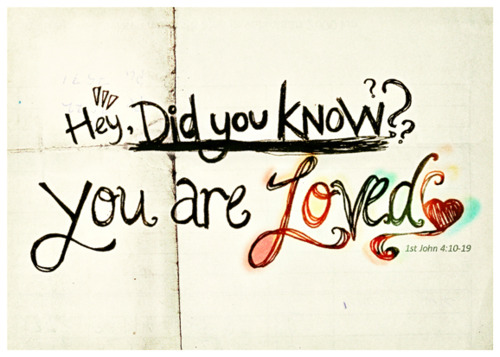 Hey, Did you KNOW????
you are Loved
1st John 4:10-19